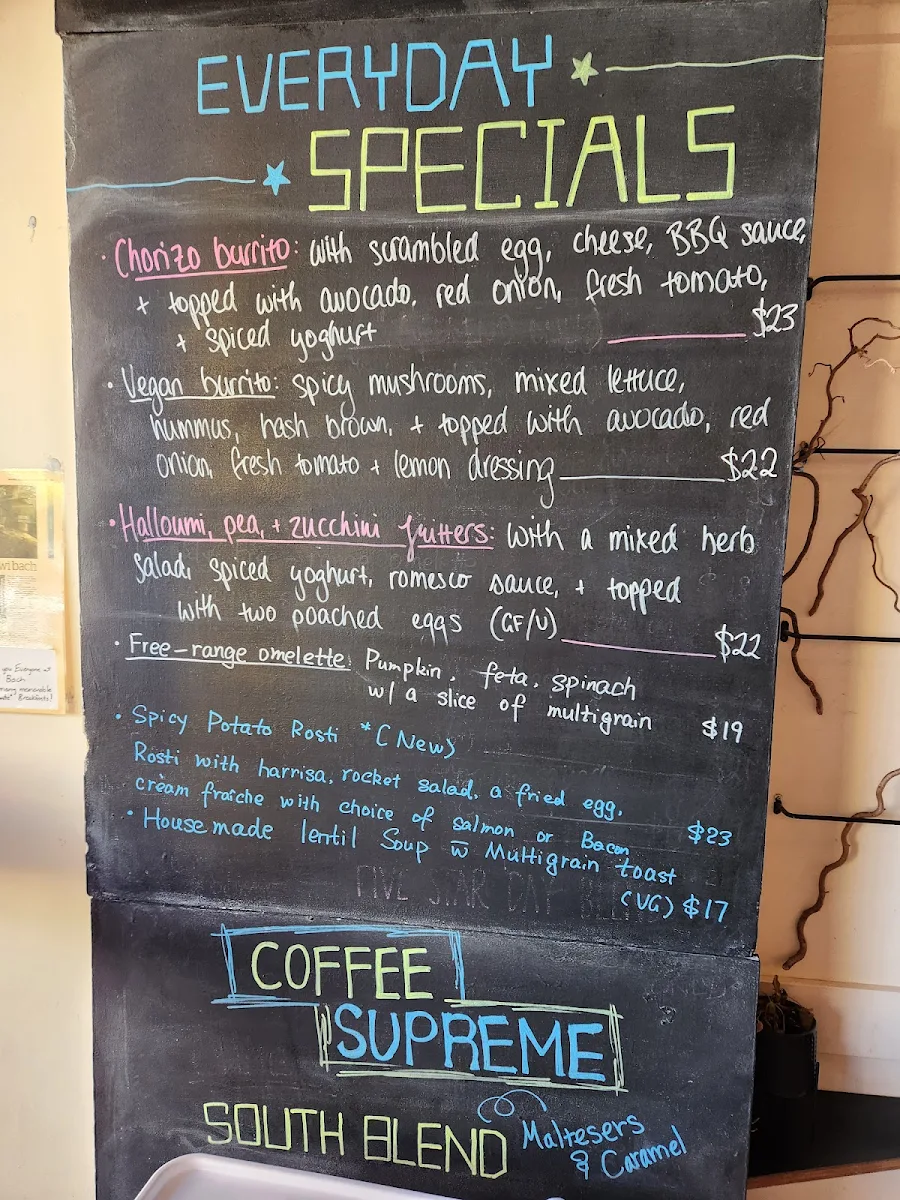 EVERYDAY
SPECIALS
· Chorizo burrito: with scrambled egg, cheese, BBQ sauce,
+ topped with avocado, red onion, fresh tomato,
+ spiced yoghurt $23
· Vegan burrito: spicy mushrooms, mixed lettuce,
hummus, hash brown, + topped with avocado, red
onion, fresh tomato + lemon dressing $22
· Halloumi, pea, + zucchini fritters: with a mixed herb
salad, spiced yoghurt, romesco sauce, + topped
with two poached eggs (GF/V) $22
· Free-range omelette: Pumpkin, feta, spinach
w/ a slice of multigrain $19
· Spicy Potato Rosti *(New)
Rosti with harrisa, rocket salad, a fried egg,
crèam fraîche with choice of salmon or Bacon $23
· House made lentil Soup w̅ Multigrain toast
(VG) $17
FIVE STAR DAY
COFFEE
SUPREME
SOUTH BLEND
Maltesers
& Caramel
wi bach
you Everyone at
Bach
many memorable
Breakfasts!